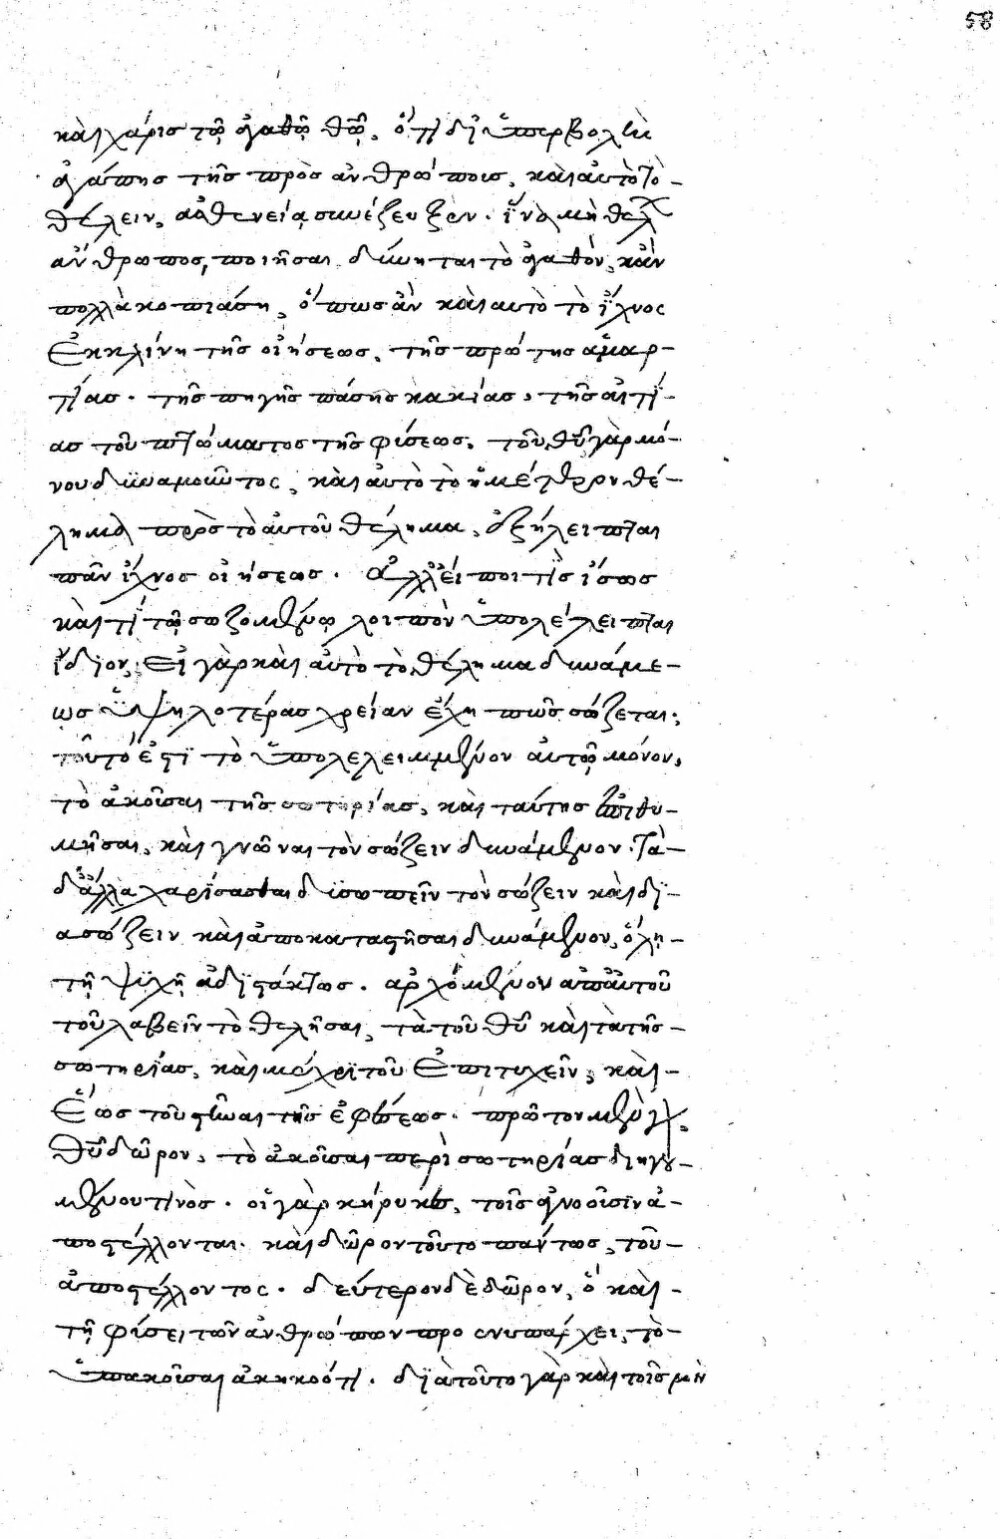 58
καὶ χάρις τῷ ἀγαθῷ θῷ, ὅτι δι ὑπερβολὴν
ἀγάπης τῆς πρὸς ἀνθρώποις, καὶ αὐτὸ τὸ-
θέλειν, ἀσθενείᾳ συνέζευξεν. ἵνα μὴ θελ
ἄνθρωπος, ποιῆσαι δύνηται τὸ ἀγαθὸν, κἂν
πολλὰ κοπιάσῃ, ὅπως ἂν καὶ αὐτὸ τὸ ἴχνος
ἐκκλίνῃ τῆς οἰήσεως, τῆς πρώτης ἁμαρ-
τίας. τῆς πηγῆς πάσης κακίας, τῆς αἰτί-
ας τοῦ πτώματος τῆς φύσεως. τοῦ θῦ γὰρ μό-
νου δυναμοῦντος, καὶ αὐτὸ τὸ ἡμέτερον θέ-
λημα πρὸς τὸ αὐτοῦ θέλημα, ἐξήλειπται
πᾶν ἴχνος οἰήσεως. ἀλλ' εἴποι τὶς ἴσως
καὶ τί τῷ σωζομένῳ λοιπὸν ὑπολέλειπται
ἴδιον; εἰ γὰρ καὶ αὐτὸ τὸ θέλημα δυνάμε-
ως ὑψηλοτέρας χρείαν ἔχη πῶς σώζεται;
τοῦτό ἐστι τὸ ὑπολελειμμένον αὐτῷ μόνον,
τὸ ἀκοῦσαι τῆς σωτηρίας, καὶ ταύτης ἐπιθυ-
μῆσαι, καὶ γνῶναι τὸν σώζειν δυνάμενον. τὰ-
δ' ἄλλα χαρίσασθαι δυσωπεῖν τὸν σώζειν καὶ δι-
ασώζειν καὶ ἀποκαταστῆσαι δυνάμενον, ὅλῃ-
τῇ ψυχῇ ἀδιστάκτως. ἀρχόμενον ἀπ' αὐτοῦ
τοῦ λαβεῖν τὸ θελῆσαι, τὰ τοῦ θῦ καὶ τὰ τῆς-
σωτηρίας, καὶ μέχρι τοῦ ἐπιτυχεῖν, καὶ-
ἕως τοῦ στῆναι τῆς ἐφέσεως. πρῶτον μὲν
θῦ δῶρον, τὸ ἀκοῦσαι περὶ σωτηρίας διηγου-
μένου τινὸς. οἱ γὰρ κήρυκες, τοῖς ἀγνοοῦσιν ἀ-
ποστέλλονται. καὶ δῶρον τοῦτο πάντως, τοῦ-
ἀποστέλλοντος. δεύτερον δὲ δῶρον, ὃ καὶ-
τῇ φύσει τῶν ἀνθρώπων προενυπάρχει, τὸ-
ὑπακοῦσαι ἀκηκοότι. διὰ τοῦτο γὰρ καὶ τοῖς μὲν